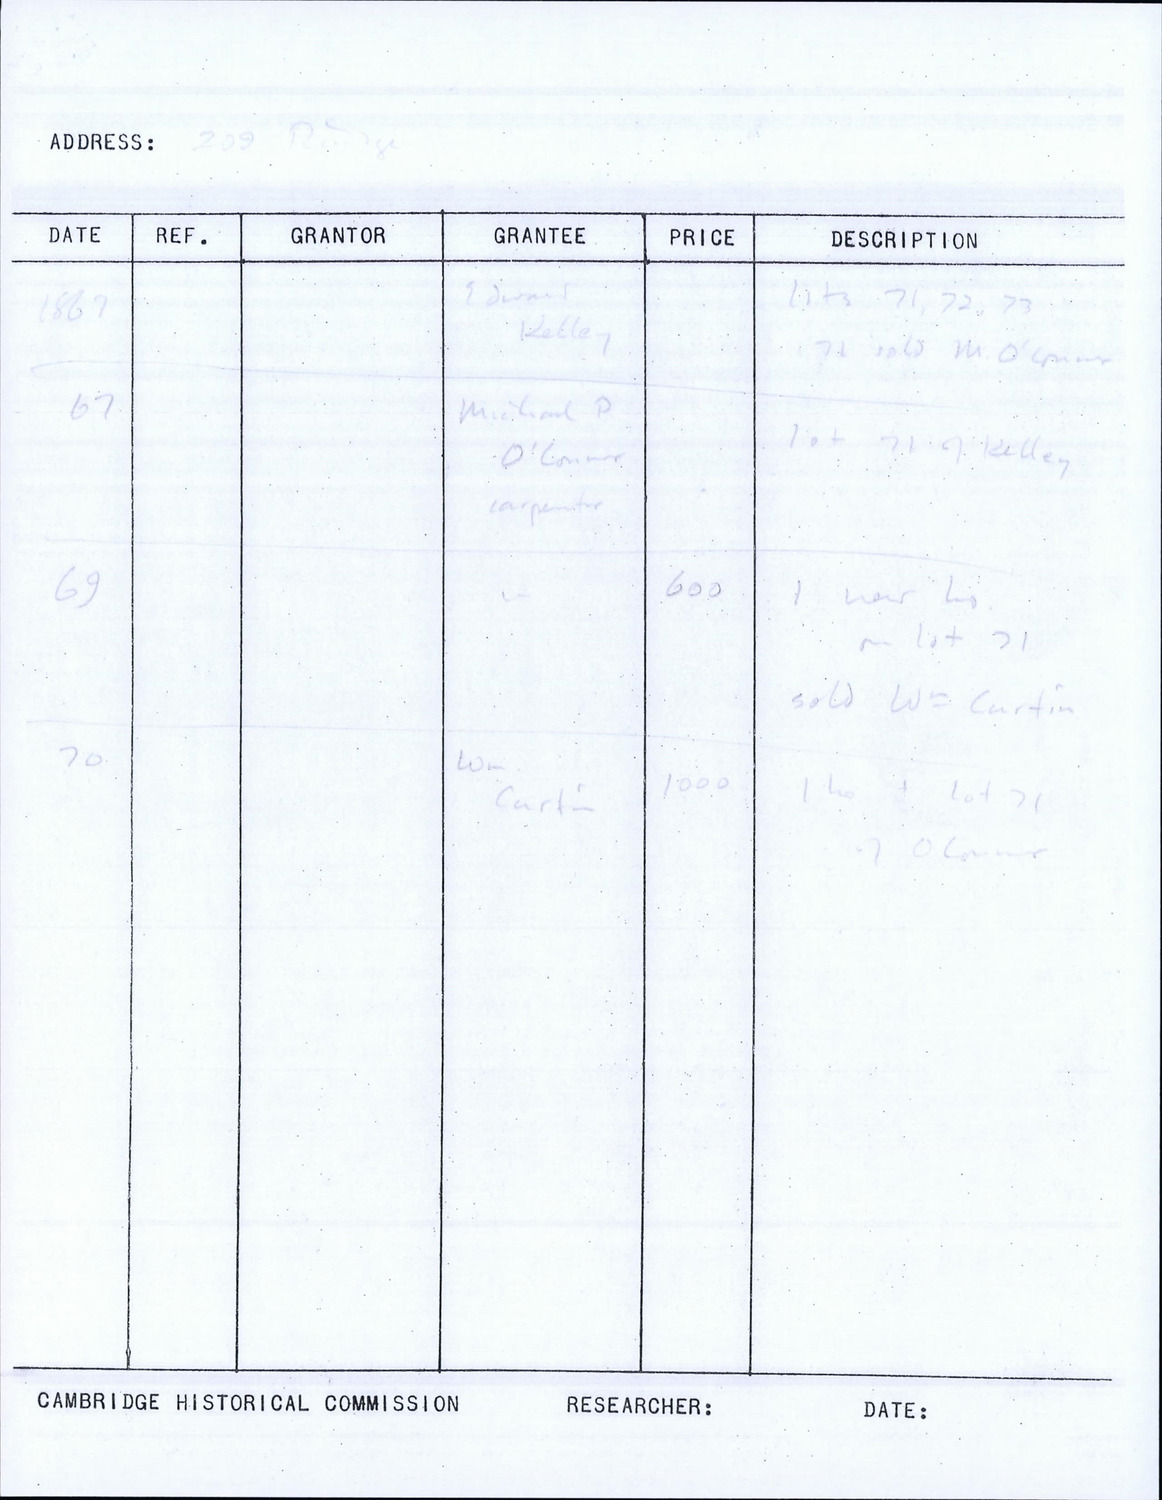 ADDRESS: 209 Ridge
DATE REF. GRANTOR GRANTEE PRICE DESCRIPTION
1867 Edward lots 71, 72, 73
Kelley
71 sold M. O'Connor
67 Michael P.
lot 71 of Kelley
O'Connor
carpenter
69 " 600 1 new ho.
on lot 71
sold Wm Curtin
70 Wm.
Curtin 1000 1 ho + lot 71
of O'Connor
CAMBRIDGE HISTORICAL COMMISSION RESEARCHER: DATE: